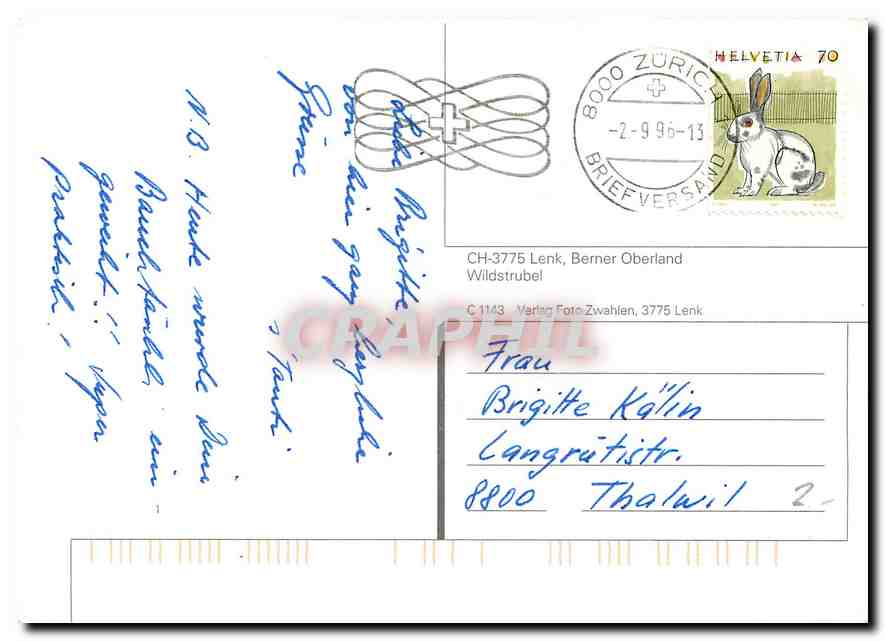 HELVETIA 70
8000 ZÜRICH
-2.-9.96-13
BRIEFVERSAND
CH-3775 Lenk, Berner Oberland
Wildstrubel
C 1143 Verlag Foto Zwahlen, 3775 Lenk
CRAPHIL
Frau
Brigitte Kälin
Langrütistr.
8800 Thalwil
2.-
Liebe Brigitte,
von hier ganz herzliche
Grüsse
s'Tanti
N.B. Heute wurde Dein
Bauchtäschli ein-
geweiht!! Super
praktisch!